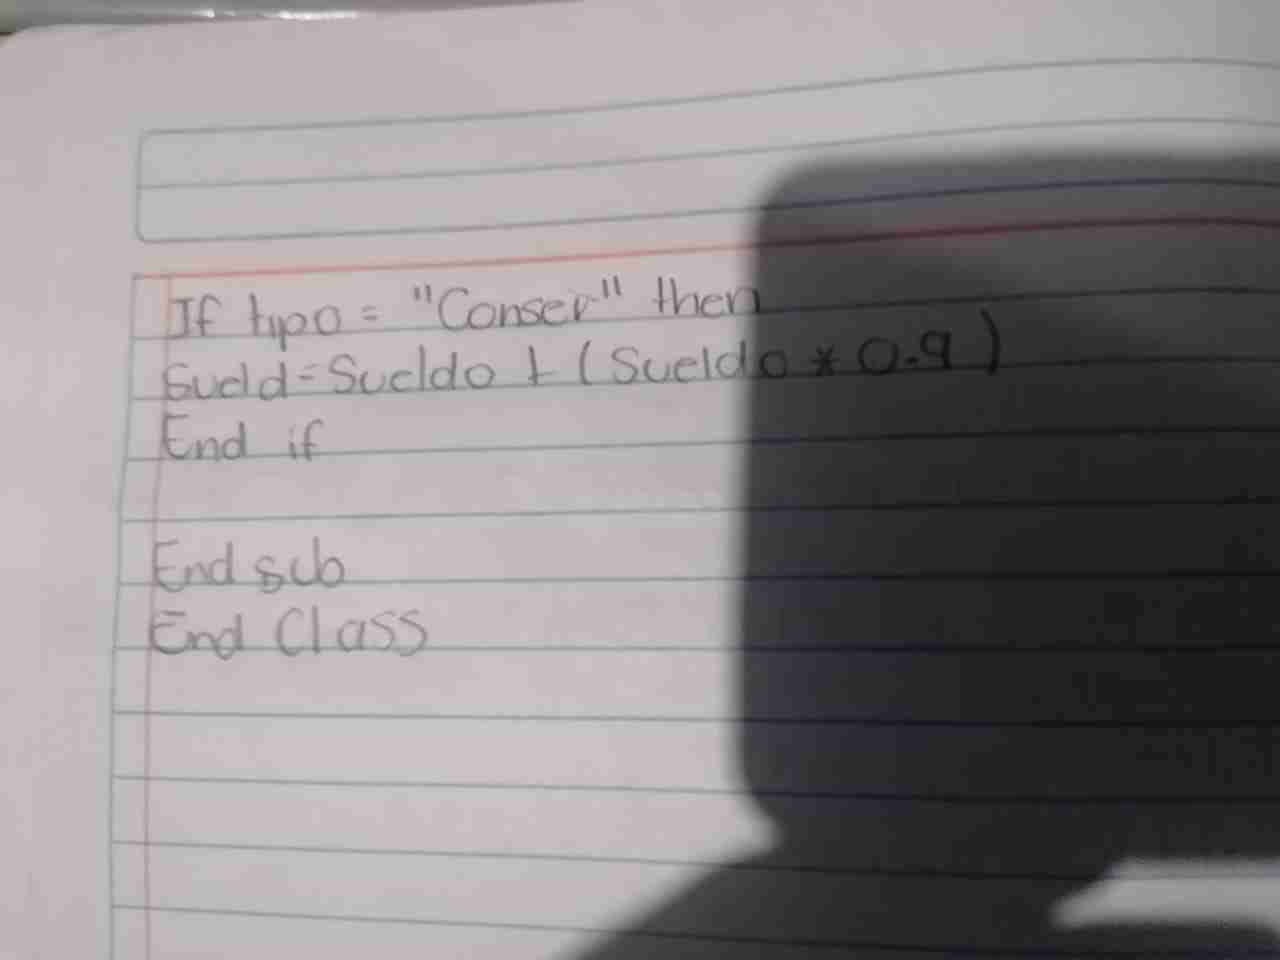 If tipo = "Conser" then
Sueld=Sueldo + (Sueldo * 0.9)
End if
End sub
End Class